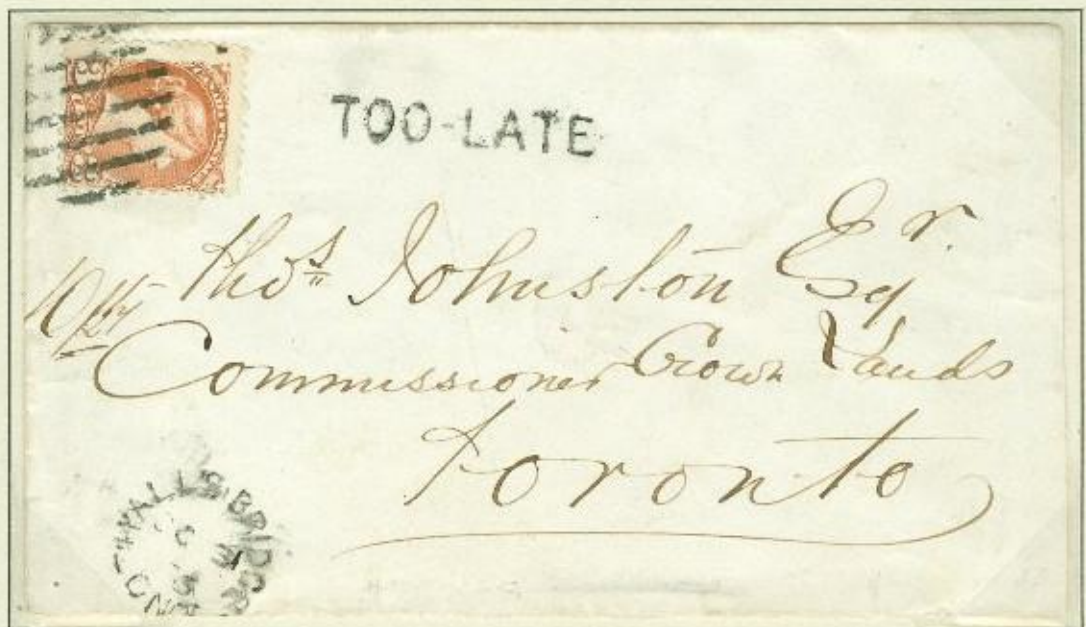 TOO-LATE
Thos Johnston Esqr.
Commissioner Crown Lands
Toronto
HALLS BRIDGE
ONT